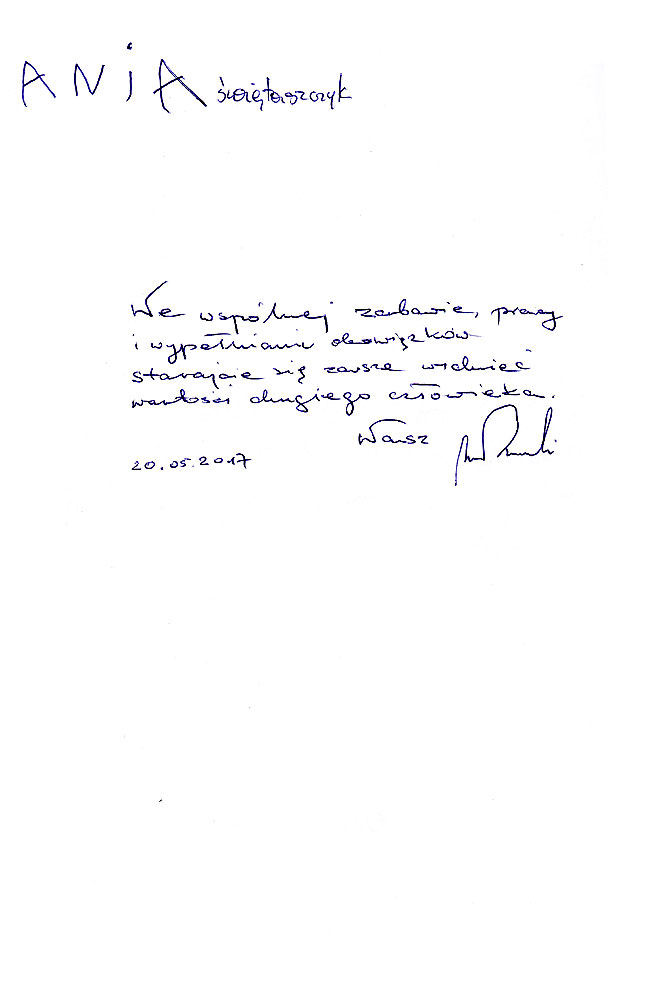 ANIA Świętoszczyk
We wspólnej zabawie, pracy
i wypełnianiu obowiązków
starajcie się zawsze widzieć
wartości drugiego człowieka.
Wasz
20.05.2017